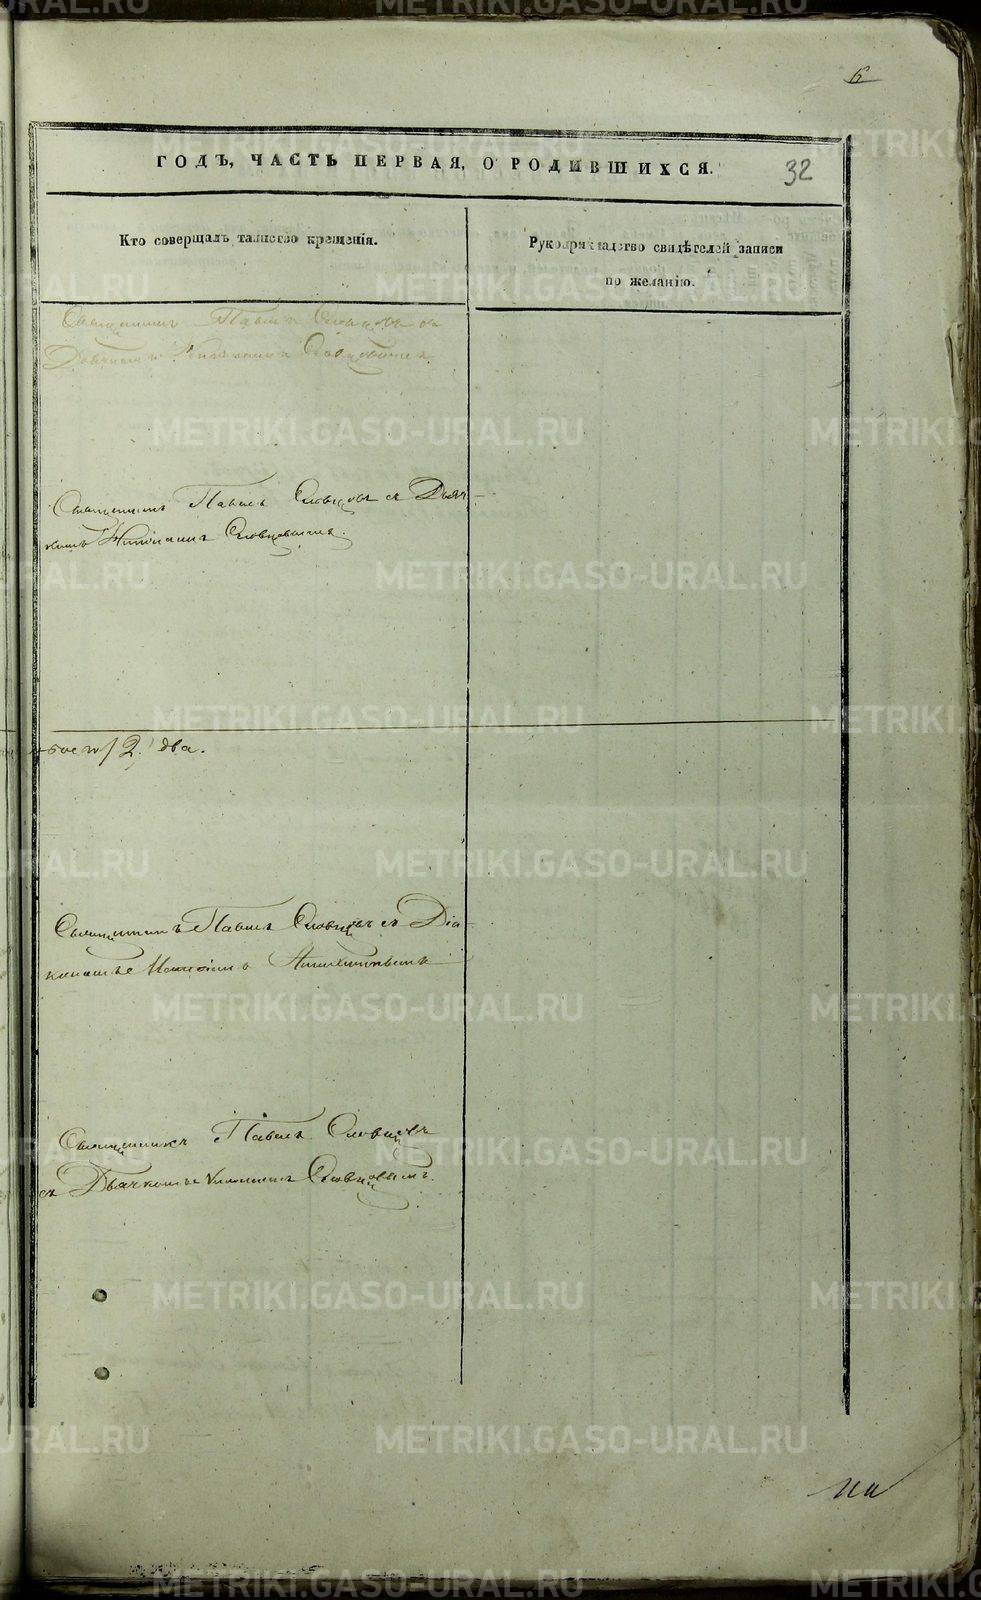 6
ГОДЪ, ЧАСТЬ ПЕРВАЯ, О РОДИВШИХСЯ.
32
Кто совершалъ таинство крещенія.
Рукоприкладство свидѣтелей записи
по желанію.
Священникъ Павелъ Словцовъ съ
Дьячкомъ Словцовымъ.
Священникъ Павелъ Словцовъ съ Дьяч-
комъ Словцовымъ.
2. два.
Священникъ Павелъ Словцовъ съ Діа-
кономъ
Священникъ Павелъ Словцовъ
съ Дьячкомъ Словцовымъ.
На
METRIKI.GASO-URAL.RU